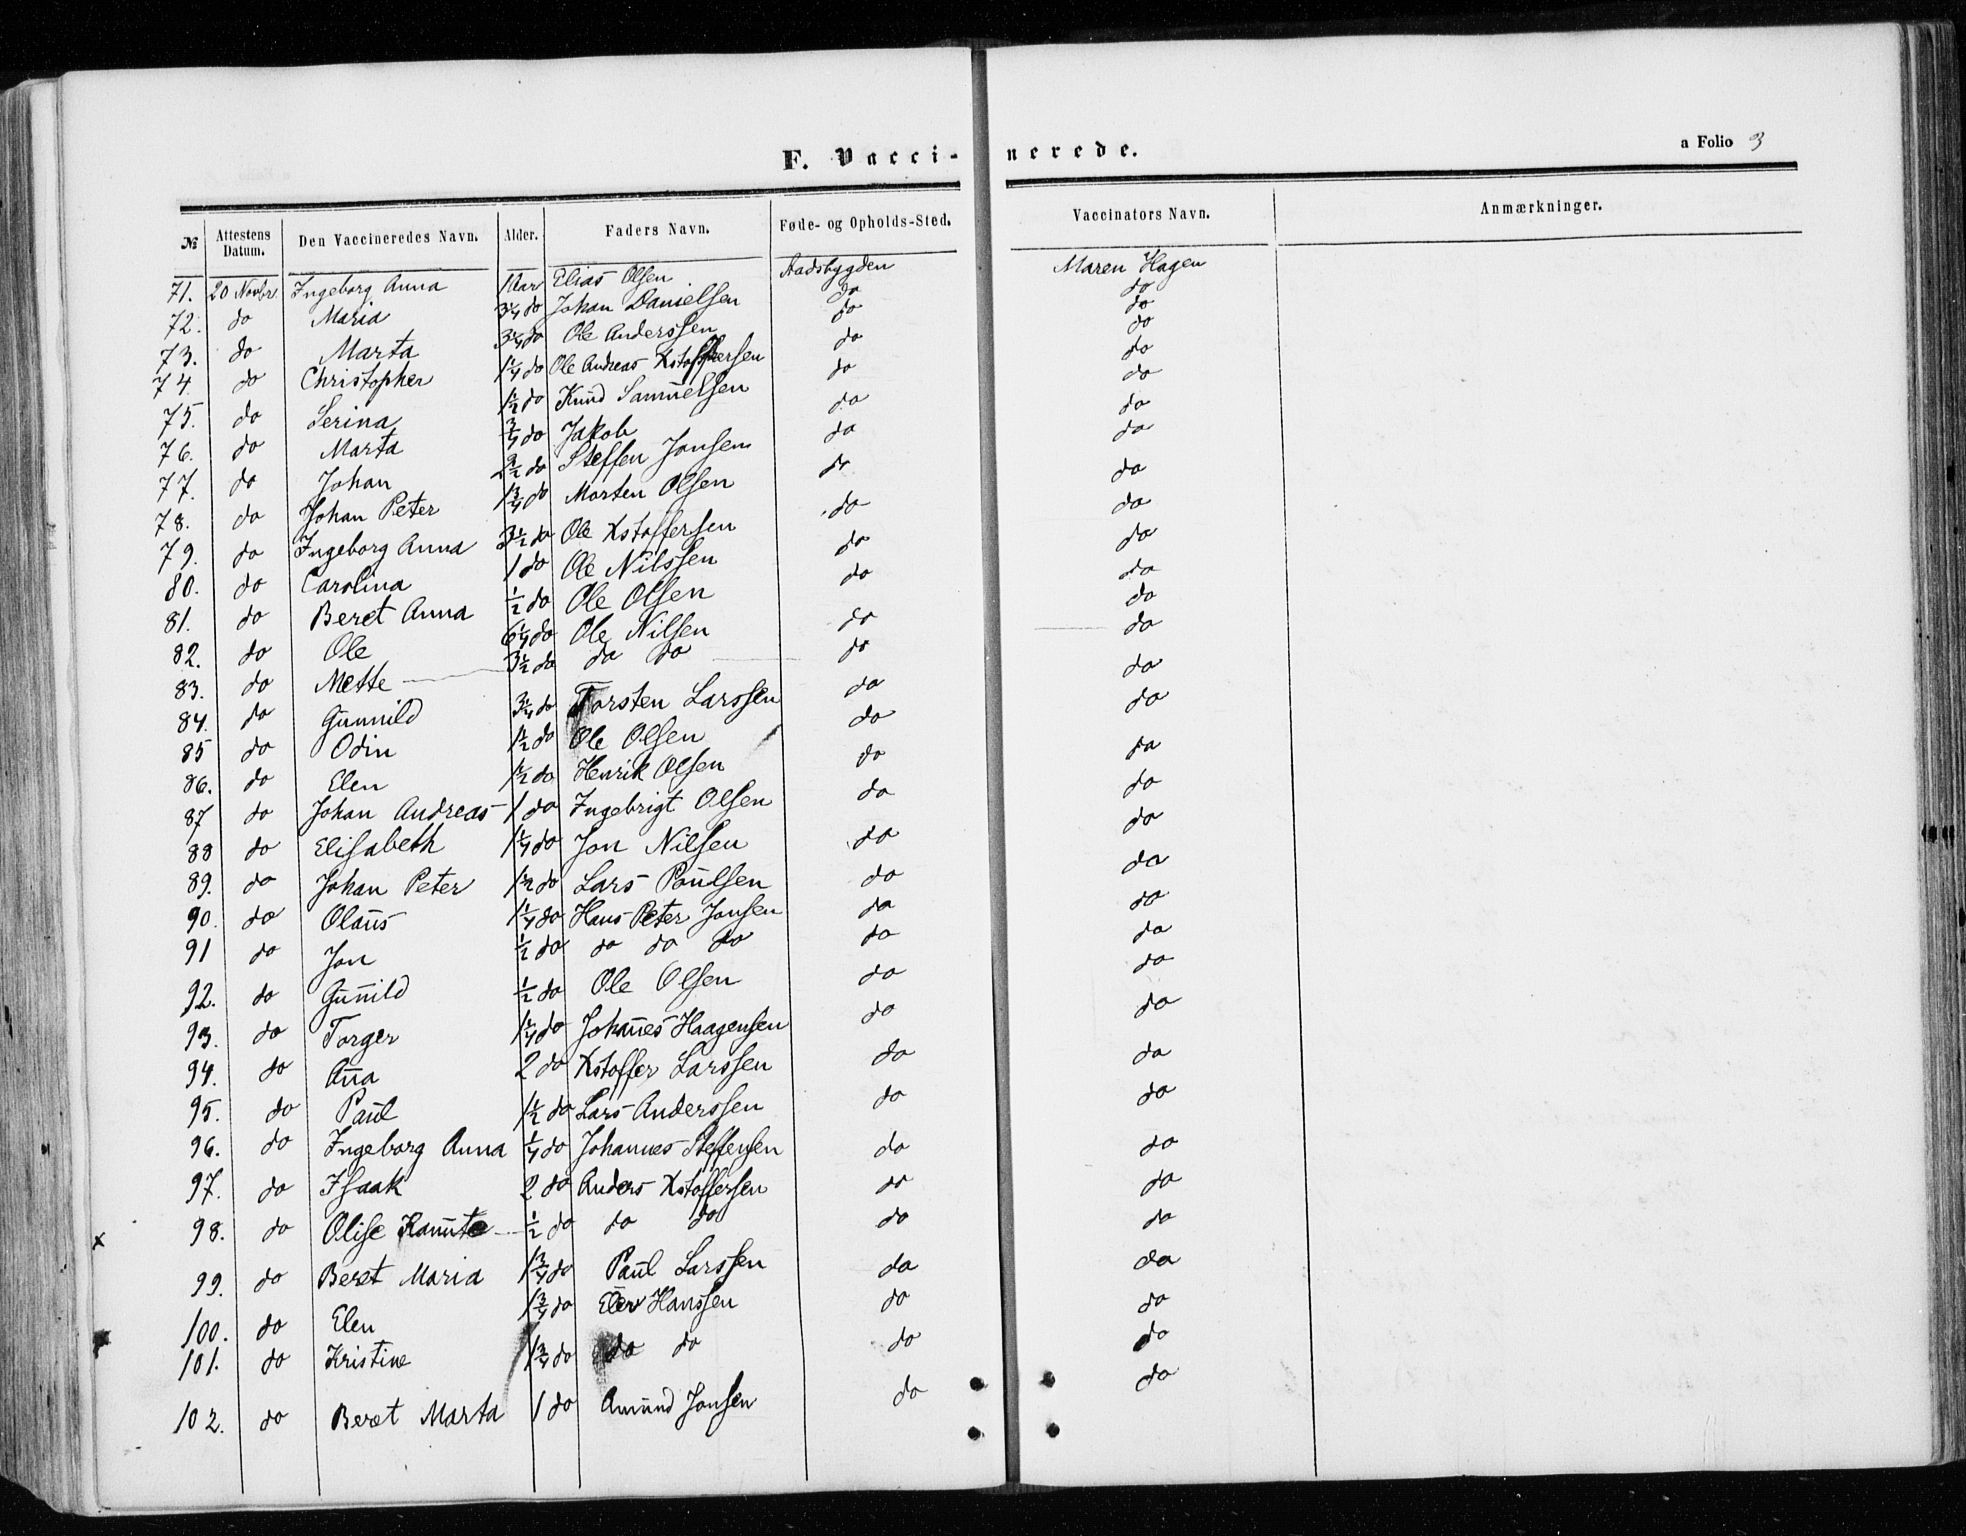 F. Vacci-nerede.
a Folio 3
№ Attestens Datum. Den Vaccineredes Navn. Alder. Faders Navn. Føde- og Opholds-Sted. Vaccinators Navn. Anmærkninger.
71. 20 Novbr. Ingeborg Anna 1 Aar Elias Olsen Aadsbygden Maren Hagen
72. do Maria 3/4 do Johan Danielsen do do
73. do Marta 3/4 do Ole Anderssen do do
74 do Christopher 1 1/4 do Ole Andreas Xstoffersen do do
75. do Serina 1 1/2 do Knud Samuelsen do do
76. do Marta 3/4 do Jakob do do
77. do Johan 2 1/2 do Steffen Jonsen do do
78. do Johan Peter 1 3/4 do Morten Olsen do do
79. do Ingeborg Anna 3 1/2 do Ole Xstoffersen do do
80. do Carolina 1 do Ole Nilssen do do
81. do Beret Anna 1/2 do Ole Olsen do do
82. do Ole 6 1/4 do Ole Nilsen do do
83. do Mette 3 1/2 do do do do do
84. do Gunnild 3/4 do Torsten Larssen do do
85 do Odin 1 1/2 do Ole Olsen do do
86. do Elen 1/2 do Henrik Olsen do do
87 do Johan Andreas 1 do Ingebrigt Olsen do do
88 do Elisabeth 1 1/4 do Jon Nilsen do do
89. do Johan Peter 1 1/2 do Lars Paulsen do do
90. do Olaus 1 1/4 do Hans Peter Jonsen do do
91 do Jon 1/2 do do do do do do
92. do Gun̄ild 1/2 do Ole Olsen do do
93. do Torger 1 1/4 do Johan̄es Haagensen do do
94. do An̄a 2 do Xstoffer Larssen do do
95. do Paul 1 1/2 do Lars Anderssen do do
96. do Ingeborg Anna 1/4 do Johannes Steffensen do do
97. do Isaak 2 do Anders Xstoffersen do do
x 98. do Olise 1/2 do do do do do
99. do Beret Maria 1 3/4 do Paul Larssen do do
100. do Elen 1 3/4 do Hanssen do do
101. do Kristine 1 3/4 do do do do do
102. do Beret Marta 1 do Amund Jonsen do do